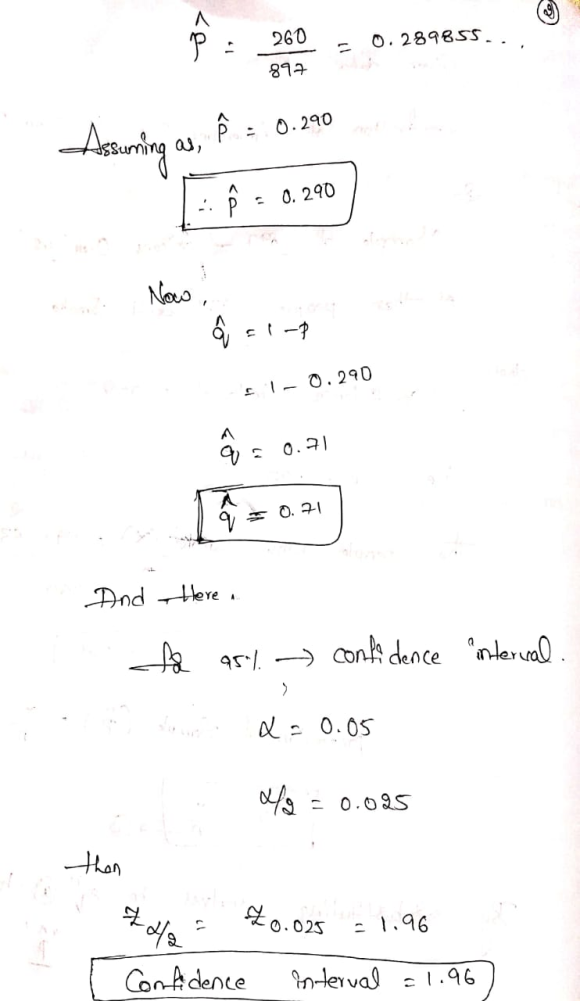 ②
p̂ = 260/897 = 0.289855...
Assuming as, p̂ = 0.290
∴ p̂ = 0.290
Now,
q̂ = 1-p
= 1 - 0.290
q̂ = 0.71
q̂ = 0.71
And Here,
for 95% → confidence interval.
,
α = 0.05
α/2 = 0.025
then
Z α/2 = Z 0.025 = 1.96
Confidence interval = 1.96